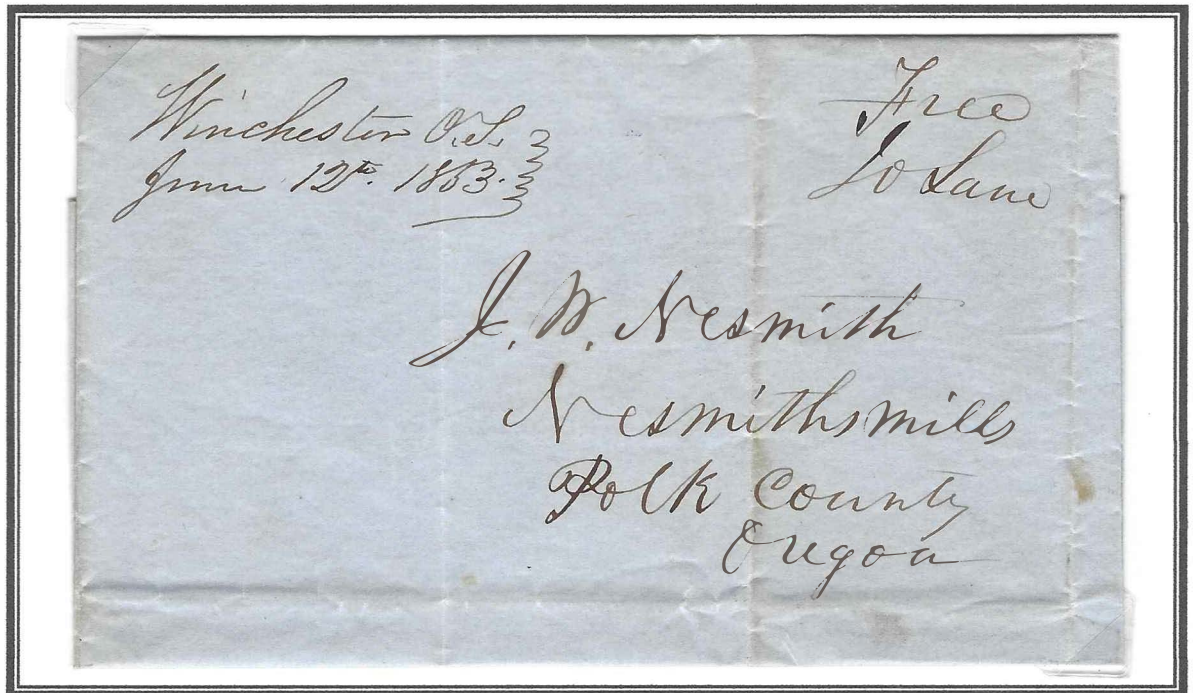 Winchester O.T.
June 12th. 1853.
Free
Jo Lane
J. W. Nesmith
Nesmithsmills
Polk County
Oregon